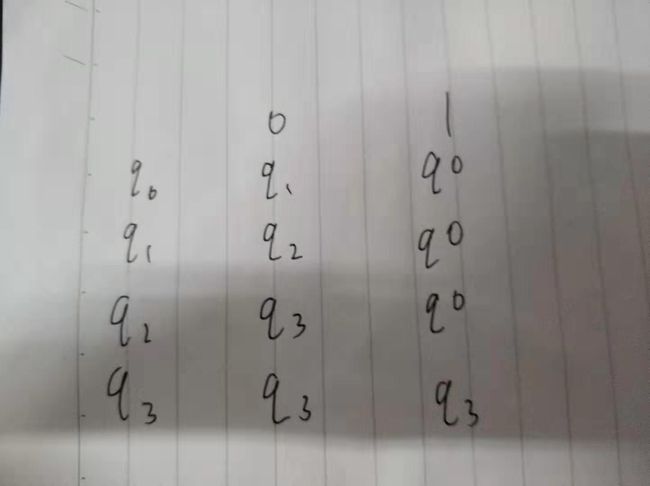 0 1
q₀ q₁ q0
q₁ q₂ q0
q₂ q₃ q0
q₃ q₃ q₃